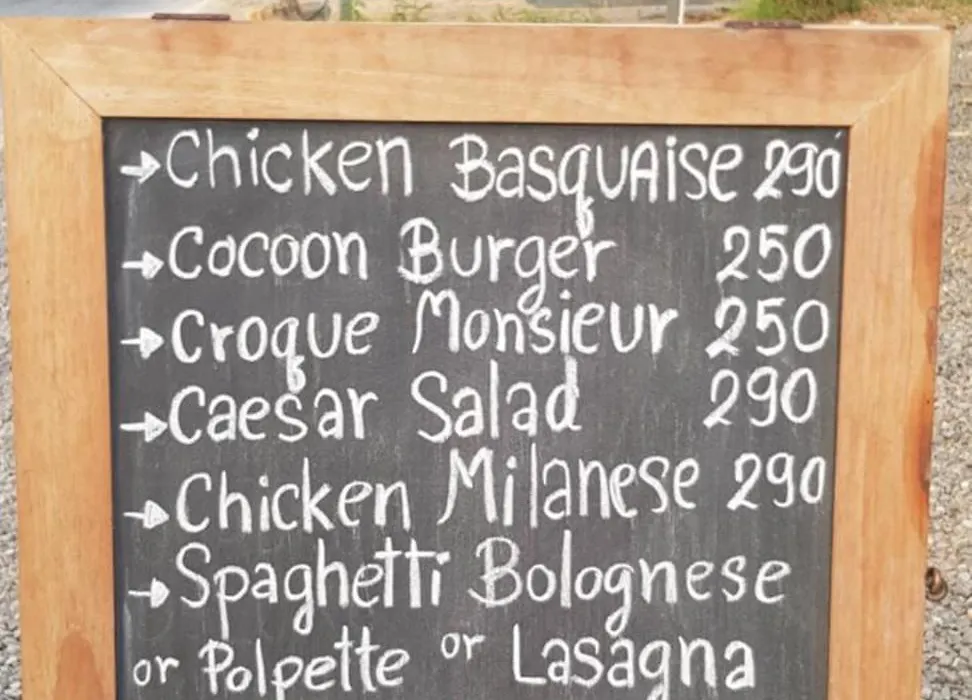 →Chicken Basquaise 290
→Cocoon Burger 250
→Croque Monsieur 250
→Caesar Salad 290
→Chicken Milanese 290
→Spaghetti Bolognese
or Polpette or Lasagna